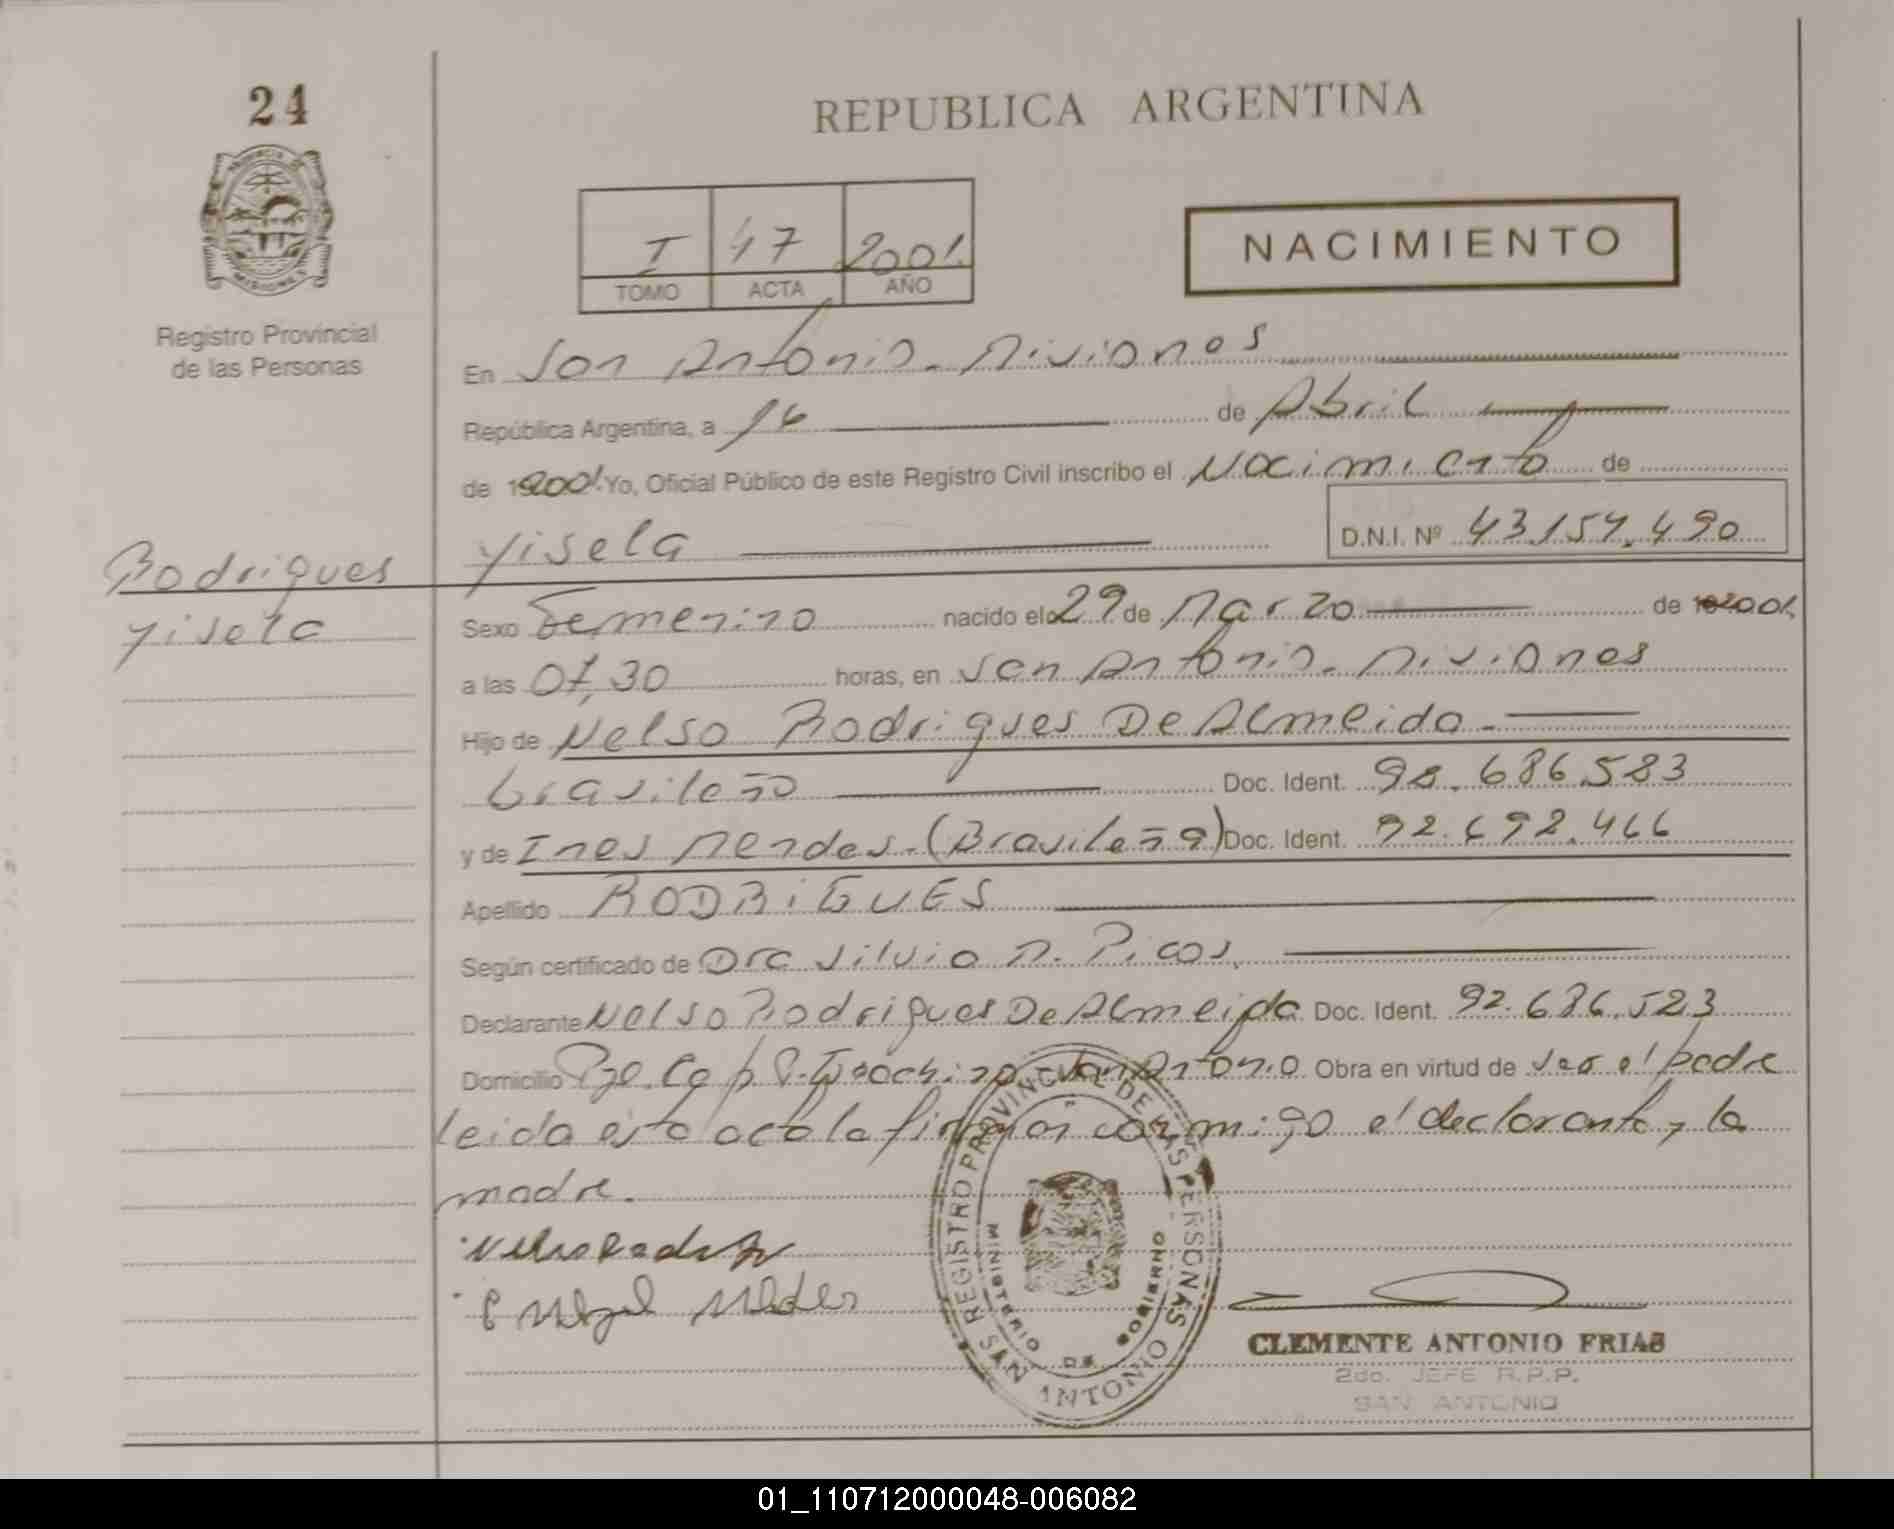 24
REPUBLICA ARGENTINA
PROVINCIA DE MISIONES
Registro Provincial
de las Personas
I 47 2001.
TOMO ACTA AÑO
NACIMIENTO
En San Antonio - Misiones
República Argentina, a 16 de Abril
de 2001. Yo, Oficial Público de este Registro Civil inscribo el Nacimiento de
Yisela D.N.I. Nº 43.154.490
Rodrigues
Yisela
Sexo Femenino nacido el 29 de Marzo de 2001.
a las 07,30 horas, en San Antonio - Misiones
Hijo de Nelso Rodrigues De Almeida -
brasileño Doc. Ident. 92.686.583
y de Ines Mendes - (Brasileña) Doc. Ident. 92.692.466
Apellido RODRIGUES
Según certificado de Dra Silvia M. Picos.
Declarante Nelso Rodrigues De Almeida Doc. Ident. 92.686.523
Domicilio San Antonio Obra en virtud de ser el padre
leida esta acta la firman conmigo el declarante y la
madre.
REGISTRO PROVINCIAL DE LAS PERSONAS
MINISTERIO DE GOBIERNO
SAN ANTONIO
CLEMENTE ANTONIO FRIAS
2do. JEFE R.P.P.
SAN ANTONIO
01_110712000048-006082